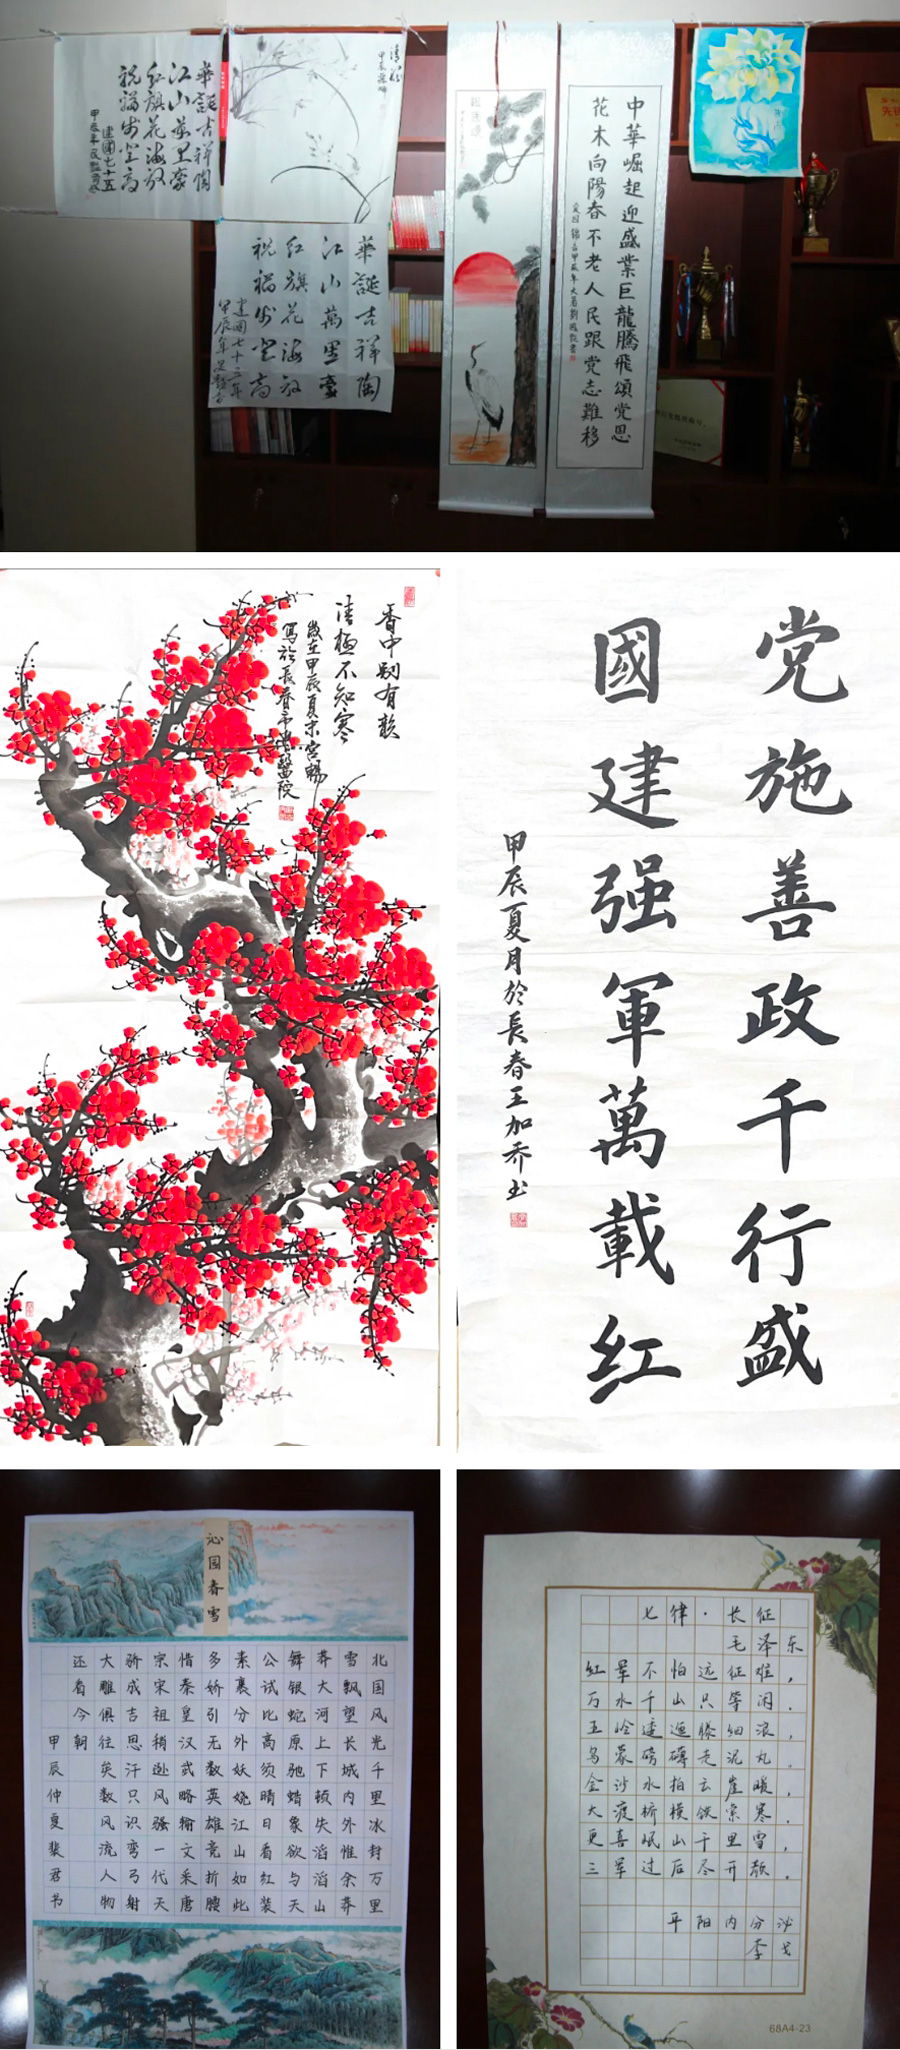 華誕吉祥陶
江山萬里豪
红旗花海放
祝福步步高
建國七十五
清影
甲辰
華誕吉祥陶
江山萬里豪
红旗花海放
祝福步步高
中華崛起迎盛業巨龍騰飛頌党恩
花木向陽春不老人民跟党志難移
香中别有韵
清極不知寒
歲在甲辰夏末宫暢
寫於長春市中醫院
党施善政千行盛
國建强軍萬載红
甲辰夏月於長春王加乔书
沁园春雪
北国风光千里冰封万里
雪飘望长城内外惟余莽
莽大河上下顿失滔滔山
舞银蛇原驰蜡象欲与天
公试比高须晴日看红装
素裹分外妖娆江山如此
多娇引无数英雄竞折腰
惜秦皇汉武略输文采唐
宗宋祖稍逊风骚一代天
骄成吉思汗只识弯弓射
大雕俱往矣数风流人物
还看今朝
甲辰仲夏裴君书
七律·长征
毛泽东
红军不怕远征难，
万水千山只等闲.
五岭逶迤腾细浪，
乌蒙磅礴走泥丸.
金沙水拍云崖暖，
大渡桥横铁索寒.
更喜岷山千里雪，
三军过后尽开颜.
平阳内分泌
李戈
68A4-23